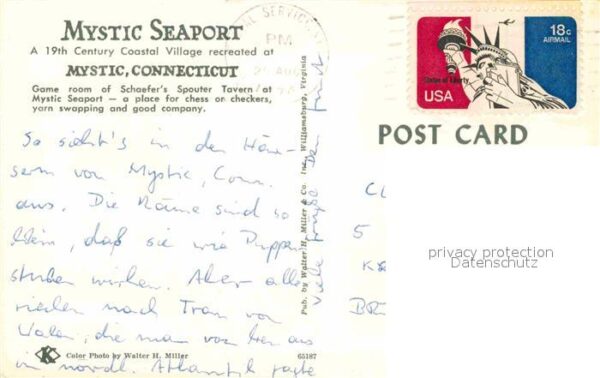 MYSTIC SEAPORT
A 19th Century Coastal Village recreated at
MYSTIC, CONNECTICUT
Game room of Schaefer's Spouter Tavern at
Mystic Seaport — a place for chess or checkers,
yarn swapping and good company.
So sieht's in den Häu-
sern von Mystic, Conn.
aus. Die Räume sind so
klein, daß sie wie Puppen
stuben wirken. Aber alle
riechen nach Tran von
Walen, die man von hier aus
im nördl. Atlantik jagte
Viele Grüße Dein
Pub. by Walter H. Miller & Co. Inc. Williamsburg, Virginia
K
Color Photo by Walter H. Miller
65187
PM
18c
AIRMAIL
Statue of Liberty
USA
POST CARD
5
privacy protection
Datenschutz